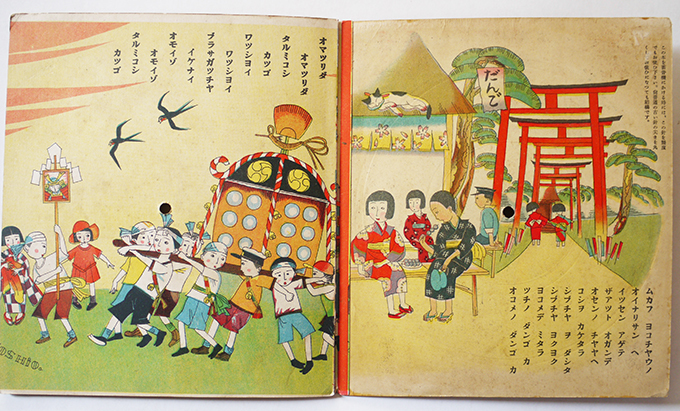 だんご
ムカフ ヨコチヤウノ
オイナリサン ヘ
イツセン アゲテ
ザアツト オガンデ
オセンノ チヤヤヘ
コシヲ カケタラ
シブチヤ ヲ ダシタ
シブチヤ ヨクヨク
ヨコメデ ミタラ
ツチノ ダンゴ カ
オコメノ ダンゴ カ
オマツリダ
オマツリダ
タルミコシ
カツゴ
ワツシヨイ
ワツシヨイ
ブラサガツチヤ
イケナイ
オモイゾ
オモイゾ
タルミコシ
カツゴ
OSHIO.